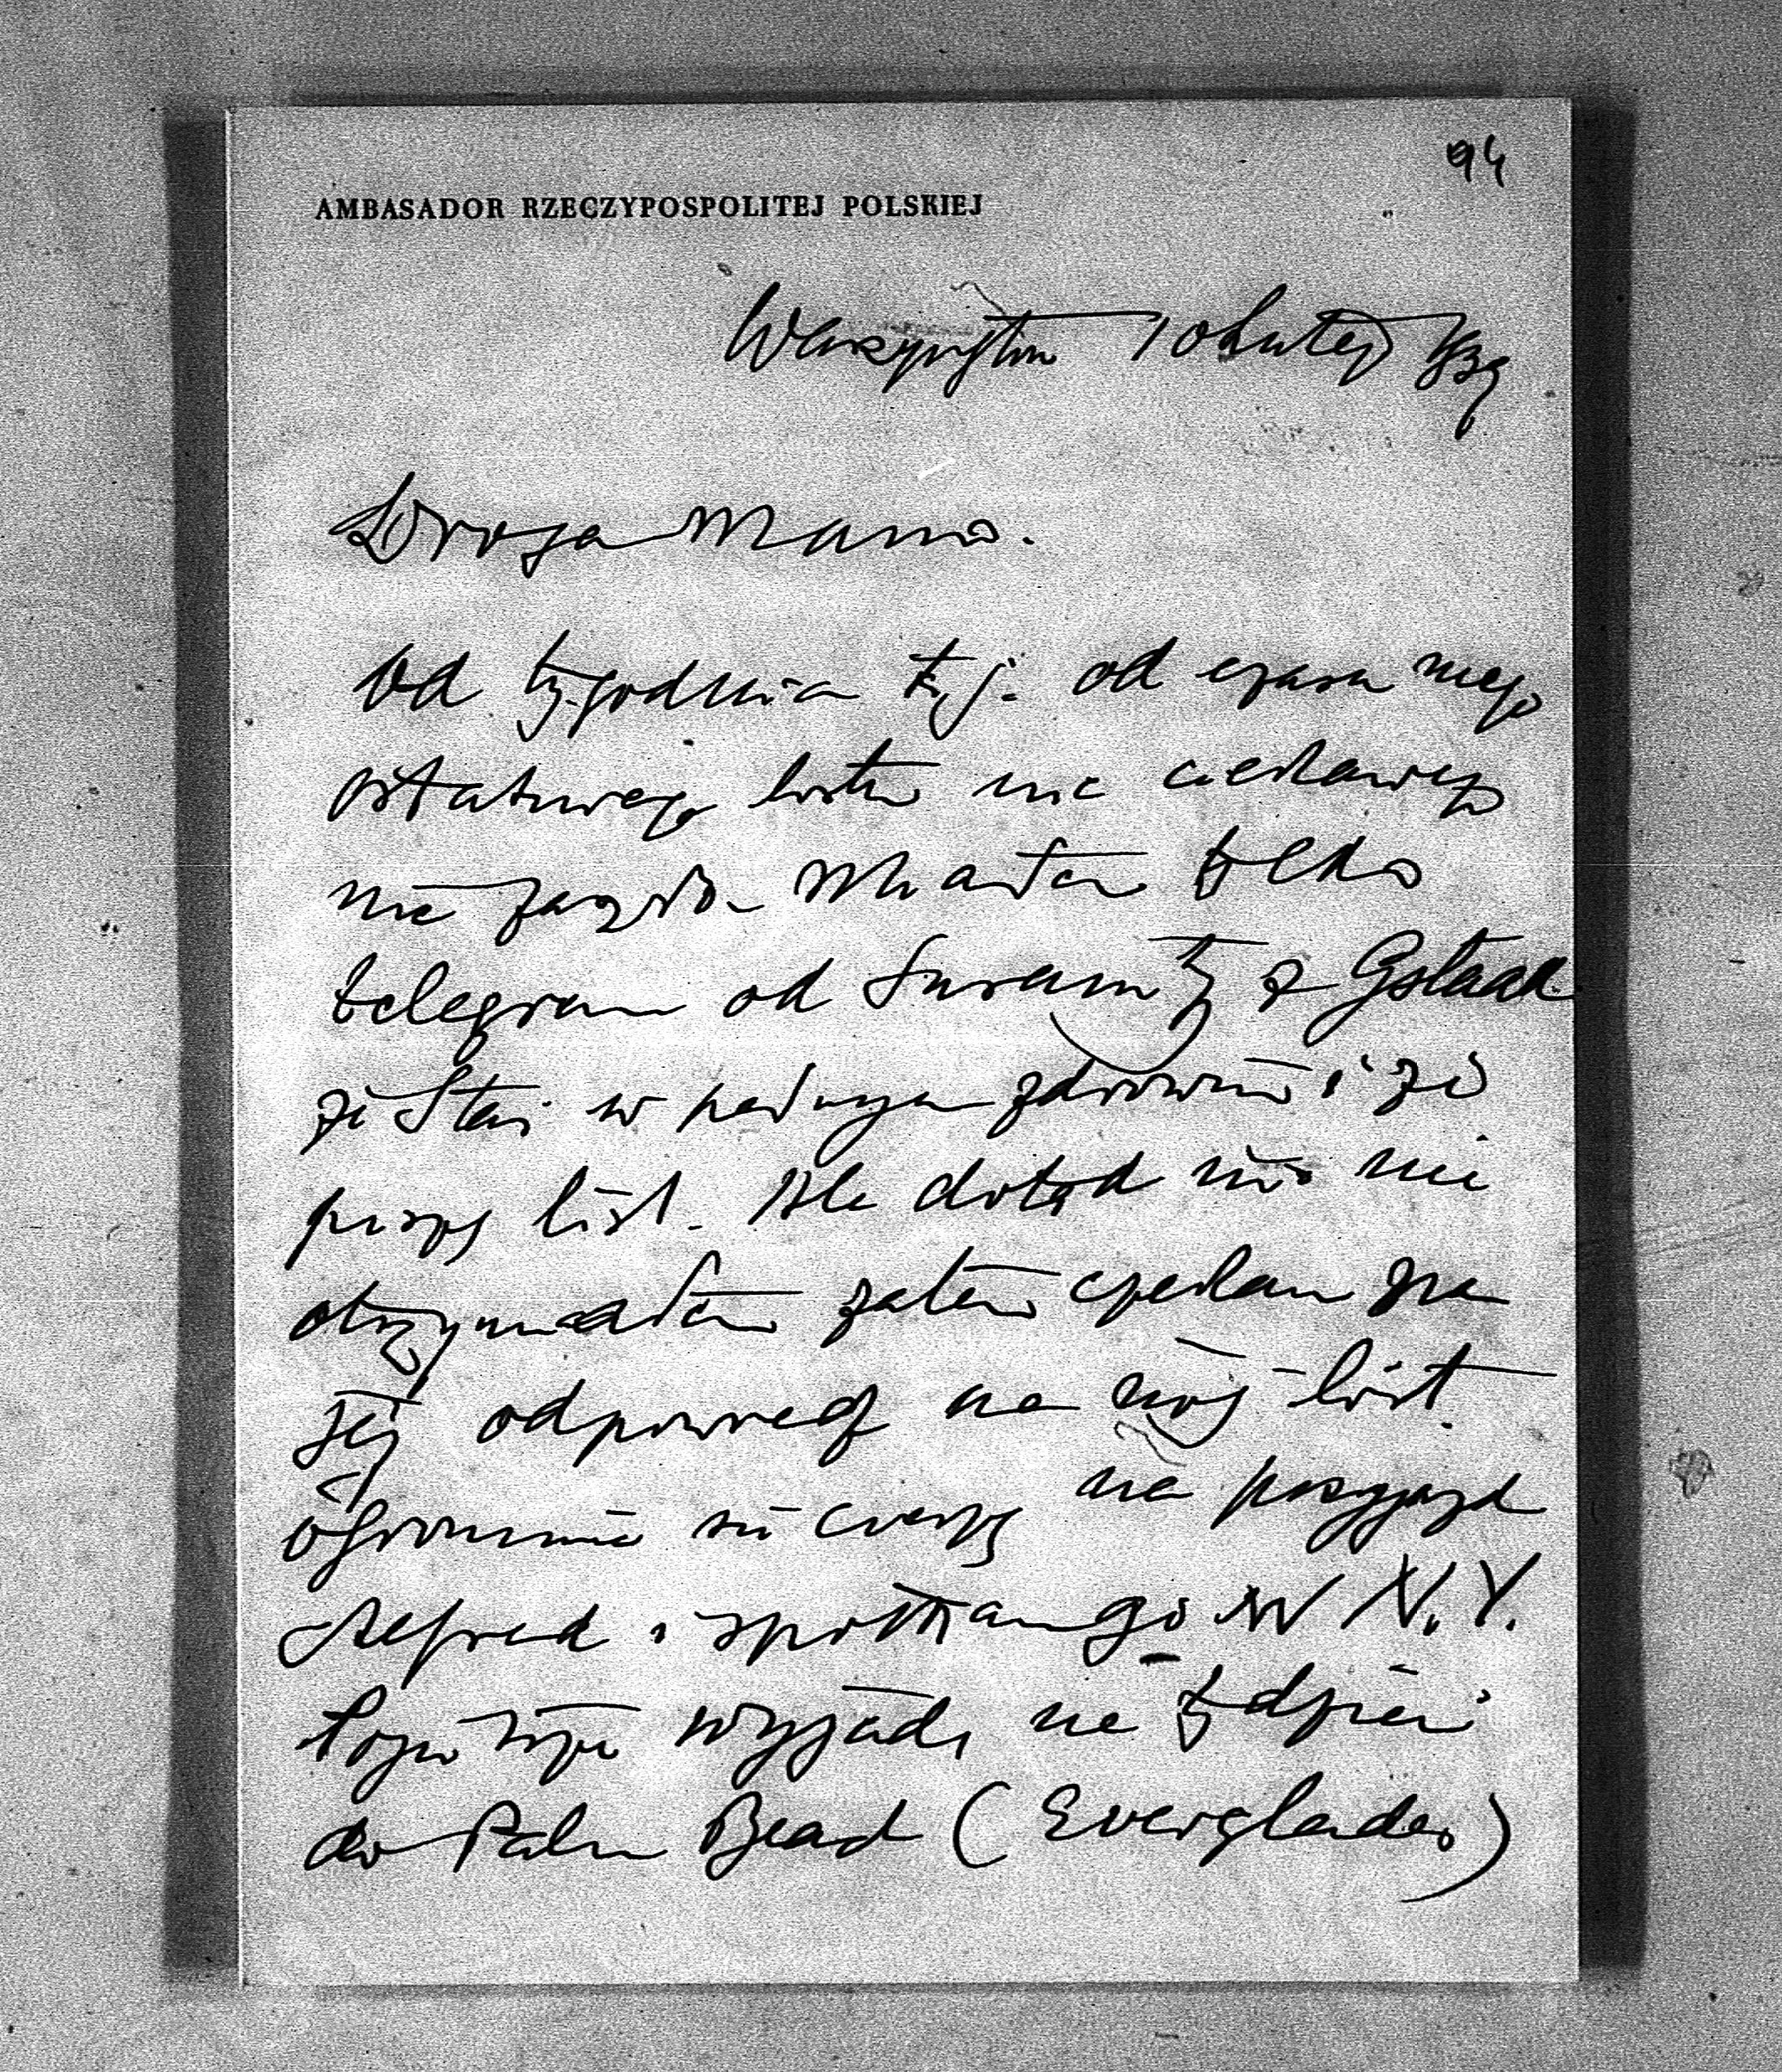 94
AMBASADOR RZECZYPOSPOLITEJ POLSKIEJ
Waszyngton 10 Lutego 939
Droga Mamo.
Od tygodnia t.j. od czasu mego
ostatniego listu nic ciekawego
nie zaszło. Miałam tylko
telegram od z Gstaad
że Staś w pełnym zdrowiu i że
piszę list. Ale dotąd nic nie
otrzymałam zatem czekam na
jej odpowiedź na mój list.
Ogromnie się cieszę na przyjazd
Alfreda i spotkam go w N.Y.
Pojutrze wyjadę na tydzień
do Palm Beach (Everglades)